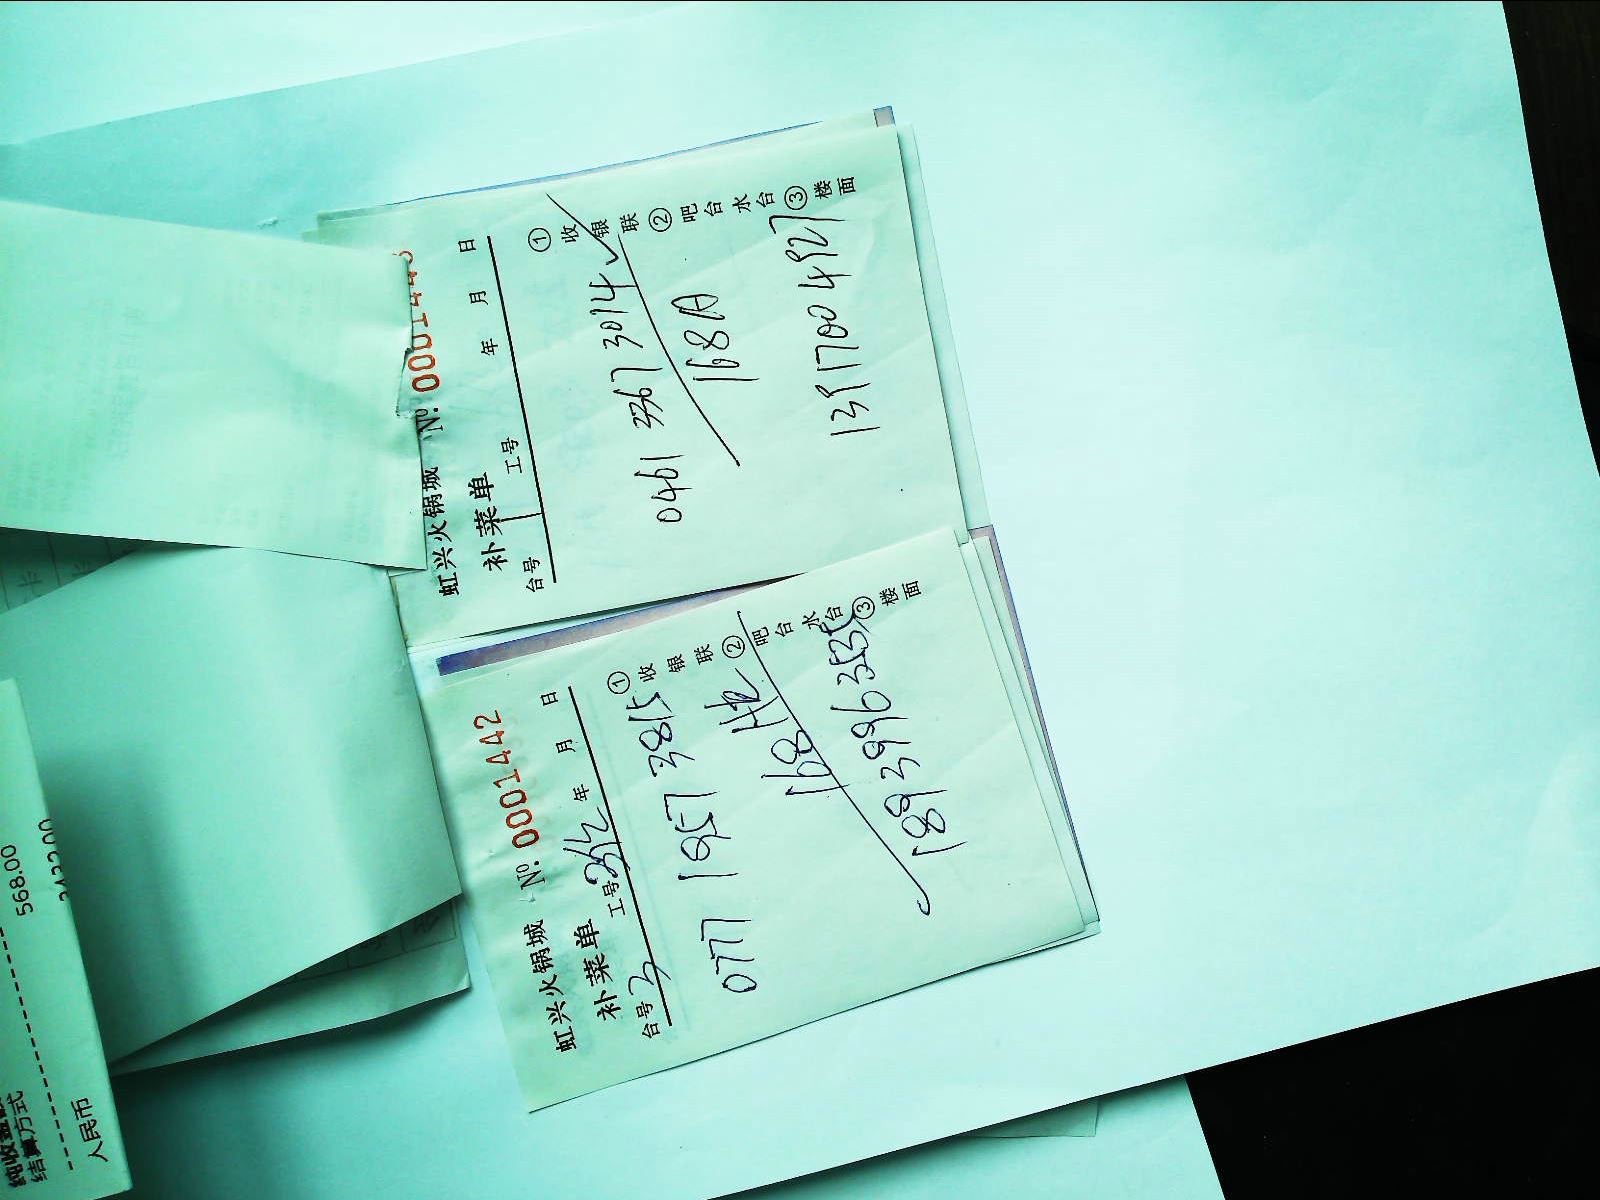 虹兴火锅城 Nº: 0001442
补菜单
台号 3 工号 年 月 日
0777 1957 3815
168
①收银联 ②吧台水台 ③楼面
虹兴火锅城 Nº: 000144
补菜单
台号 工号 年 月 日
0461 3367 3014
168A
①收银联 ②吧台水台 ③楼面
568.00
结算方式
人民币